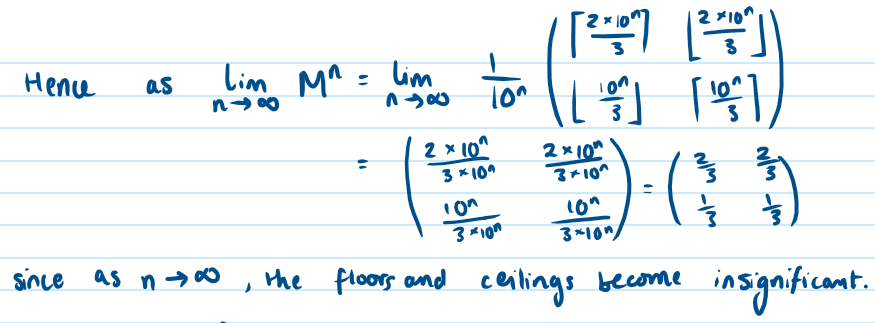 Hence as lim_{n→∞} M^n = lim_{n→∞} 1/10^n ( ⌈2×10^n/3⌉ ⌊2×10^n/3⌋ ; ⌊10^n/3⌋ ⌈10^n/3⌉ )
= ( 2×10^n/3×10^n 2×10^n/3×10^n ; 10^n/3×10^n 10^n/3×10^n ) = ( 2/3 2/3 ; 1/3 1/3 )
since as n→∞, the floors and ceilings become insignificant.